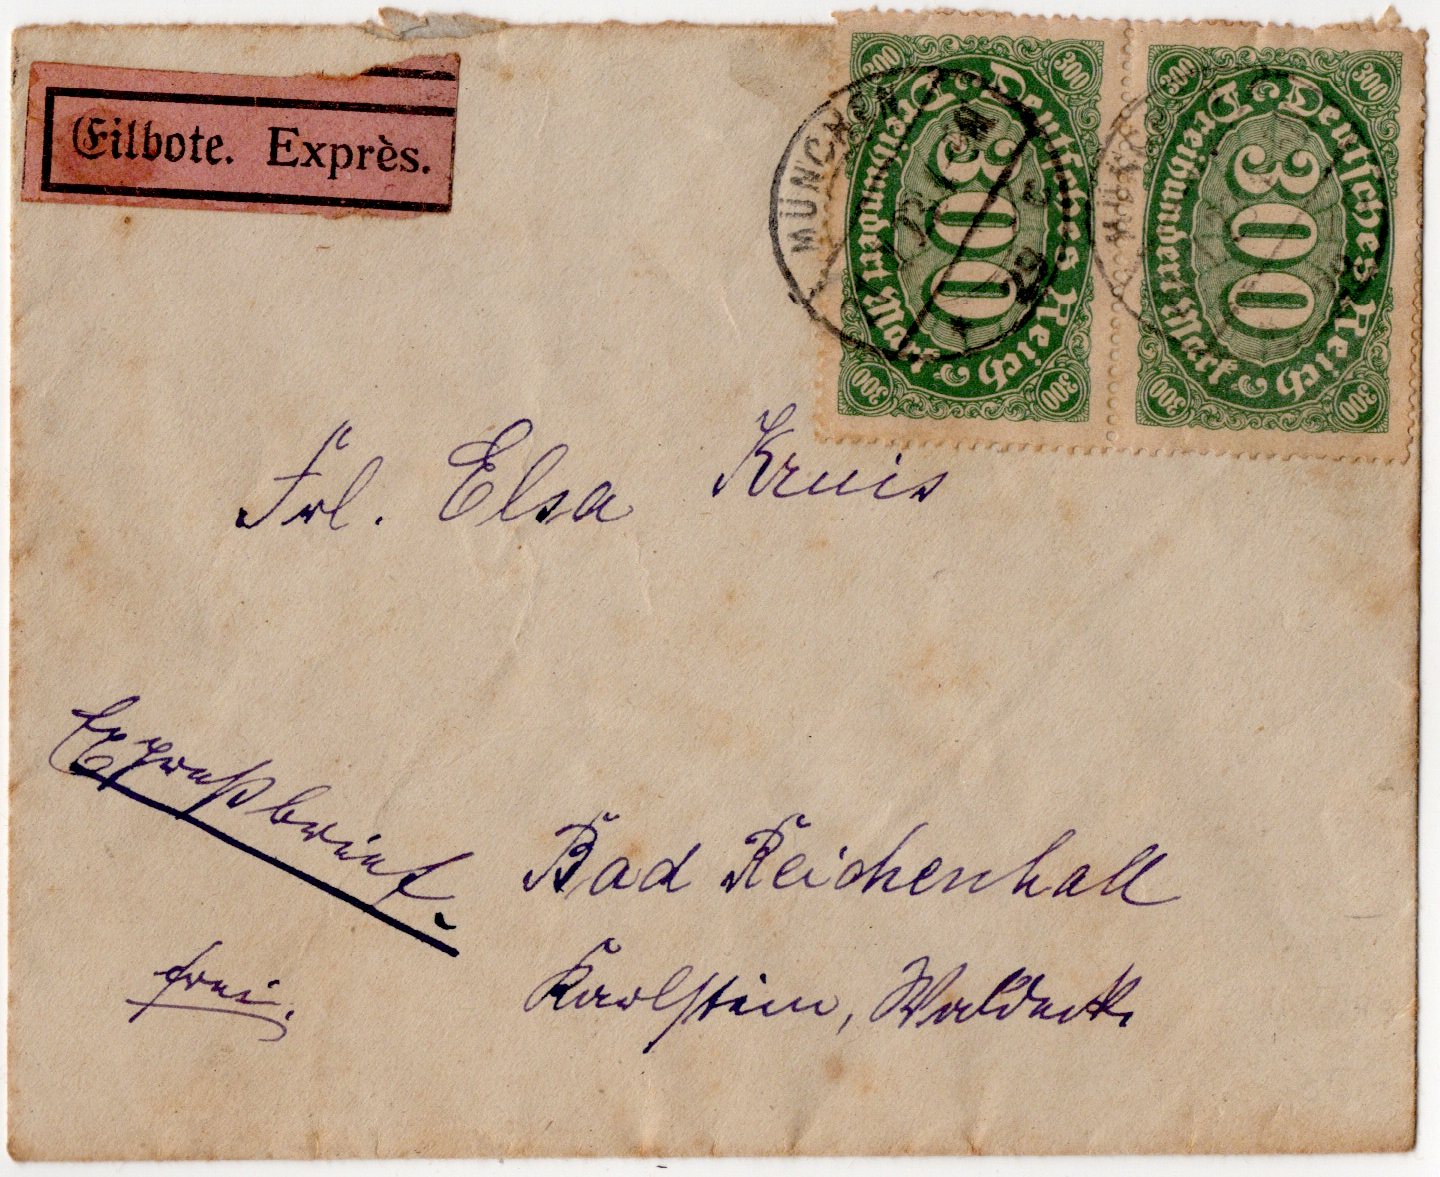 Eilbote. Exprès.
300 300
Deutsches Reich
Dreihundert Mark
300
300 300
300 300
Deutsches Reich
Dreihundert Mark
300
300 300
MÜNCHEN
29
Frl. Elsa Kruis
Expreßbrief.
Bad Reichenhall
frei.
Karlstein, Waldeck